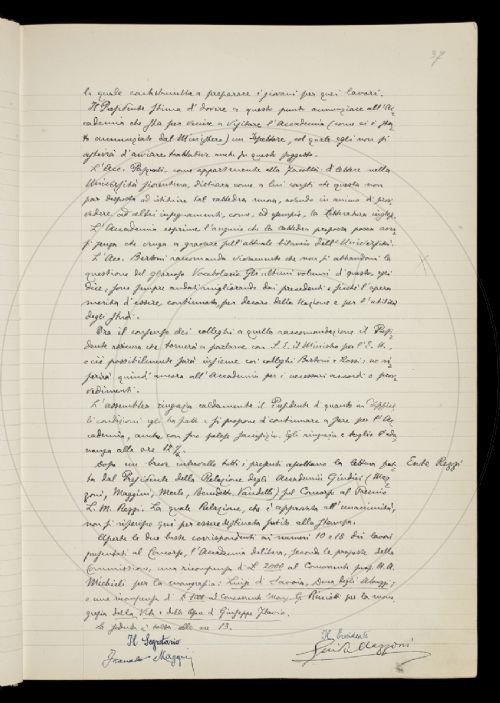 37
la quale contribuirebbe a preparare i giovani per quei lavori.
Il Presidente stima d'dovere a questo punto annunziare all'Ac-
cademia che sta per venire a visitare l'Accademia (come ci è sta-
to annunziato dal Ministero) un Ispettore, col quale egli non si
asterrà d'avviare trattative anche su questo soggetto.
L'Acc. Pasquali, come appartenente alla Facoltà d'lettere nella
Università fiorentina, dichiara come a lui consti che questa non
par disposta ad istituire tal cattedra nuova, avendo in animo di prov-
vedere ad altri insegnamenti, come, ad esempio, la letteratura inglese.
L'Accademia esprime l'augurio che la cattedra proposta possa aver-
si senza che venga a gravare sull'attuale bilancio dell'Università.
L'Acc. Bertoni raccomanda vivamente che non si abbandoni la
questione del glorioso Vocabolario. Gli ultimi volumi d'questo, egli
dice, sono sempre andati migliorando dai precedenti e sicché l'opera
merita d'essere continuata per decoro della Nazione e per l'utilità
degli studi.
Ora il consenso dei colleghi a quella raccomandazione il Presi-
dente assicura che tornerà a parlarne con S. E. il Ministro per l'E. N.
e ciò possibilmente farà insieme coi colleghi Bertoni e Rossi; ne ri-
ferirà quindi ancora all'Accademia per i necessari accordi e prov-
vedimenti.
L'assemblea ringrazia caldamente il Presidente d'quanto in
condizioni egli ha fatto e si propone d'continuare a fare per l'Ac-
cademia, anche con suo sacrifizio. Egli ringrazia e toglie l'adu-
nanza alle ore 12 1/2.
Dopo un breve intervallo tutti i presenti ascoltano la lettura fat-
Ente Rezzi
ta dal Presidente della Relazione degli Accademici Giudici (Maz-
zoni, Maggini, Merlo, Benedetti, Vandelli) sul Concorso al Premio
L. M. Rezzi. La quale Relazione, che è approvata all'unanimità,
non si riferisce qui per essere destinata subito alla stampa.
Aperte le due buste corrispondenti ai numeri 10 e 18 dei lavori
presentati al Concorso, l'Accademia delibera, secondo le proposte della
Commissione, una ricompensa d' L. 2000 al Concorrente prof. A. A.
Michieli per la monografia: Luigi di Savoia, Duca degli Abruzzi;
e una ricompensa d' L. 1000 al Concorrente Ricciotti per la mono-
grafia della Vita e delle Opere di Giuseppe Flavio.
La seduta è tolta alle ore 13.
Il Segretario
Il Presidente
Francesco Maggini
Guido Mazzoni